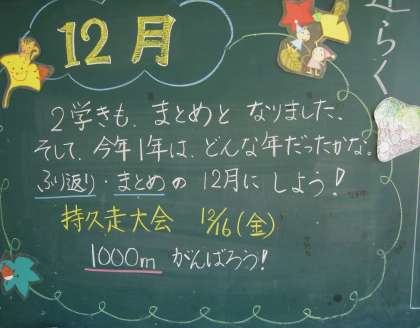 12月
2学きも、まとめと なりました。
そして、今年1年は、どんな年だったかな。
ふり返り・まとめの 12月に しよう!
持久走大会 12/16(金)
1000m がんばろう!
らく